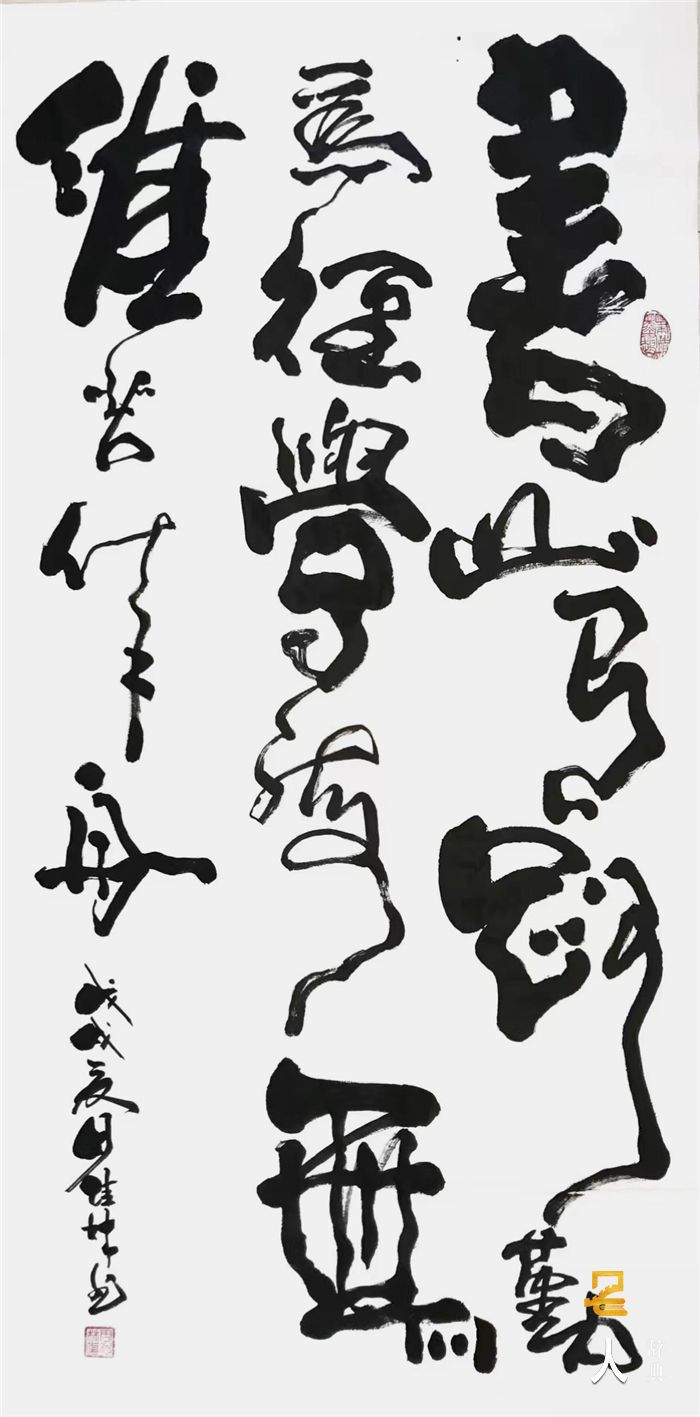 書山有路勤
為徑學海無
涯苦作舟
戊戌夏月
人
辞典